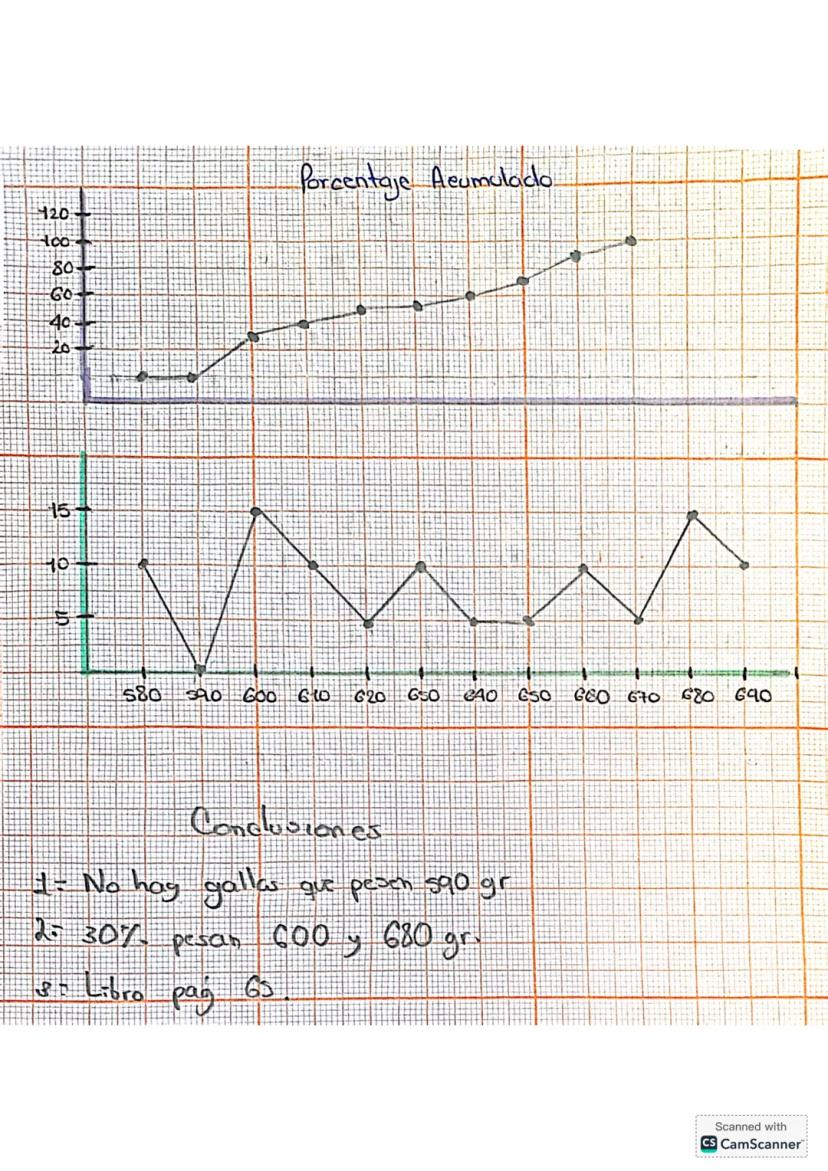 Porcentaje Acumulado
120
100
80
60
40
20
15
10
5
580 590 600 610 620 630 640 650 660 670 680 690
Conclusiones
1= No hay gallas que pesen 590 gr
2= 30% pesan 600 y 680 gr.
3= Libro pag 65.
Scanned with
CS CamScanner